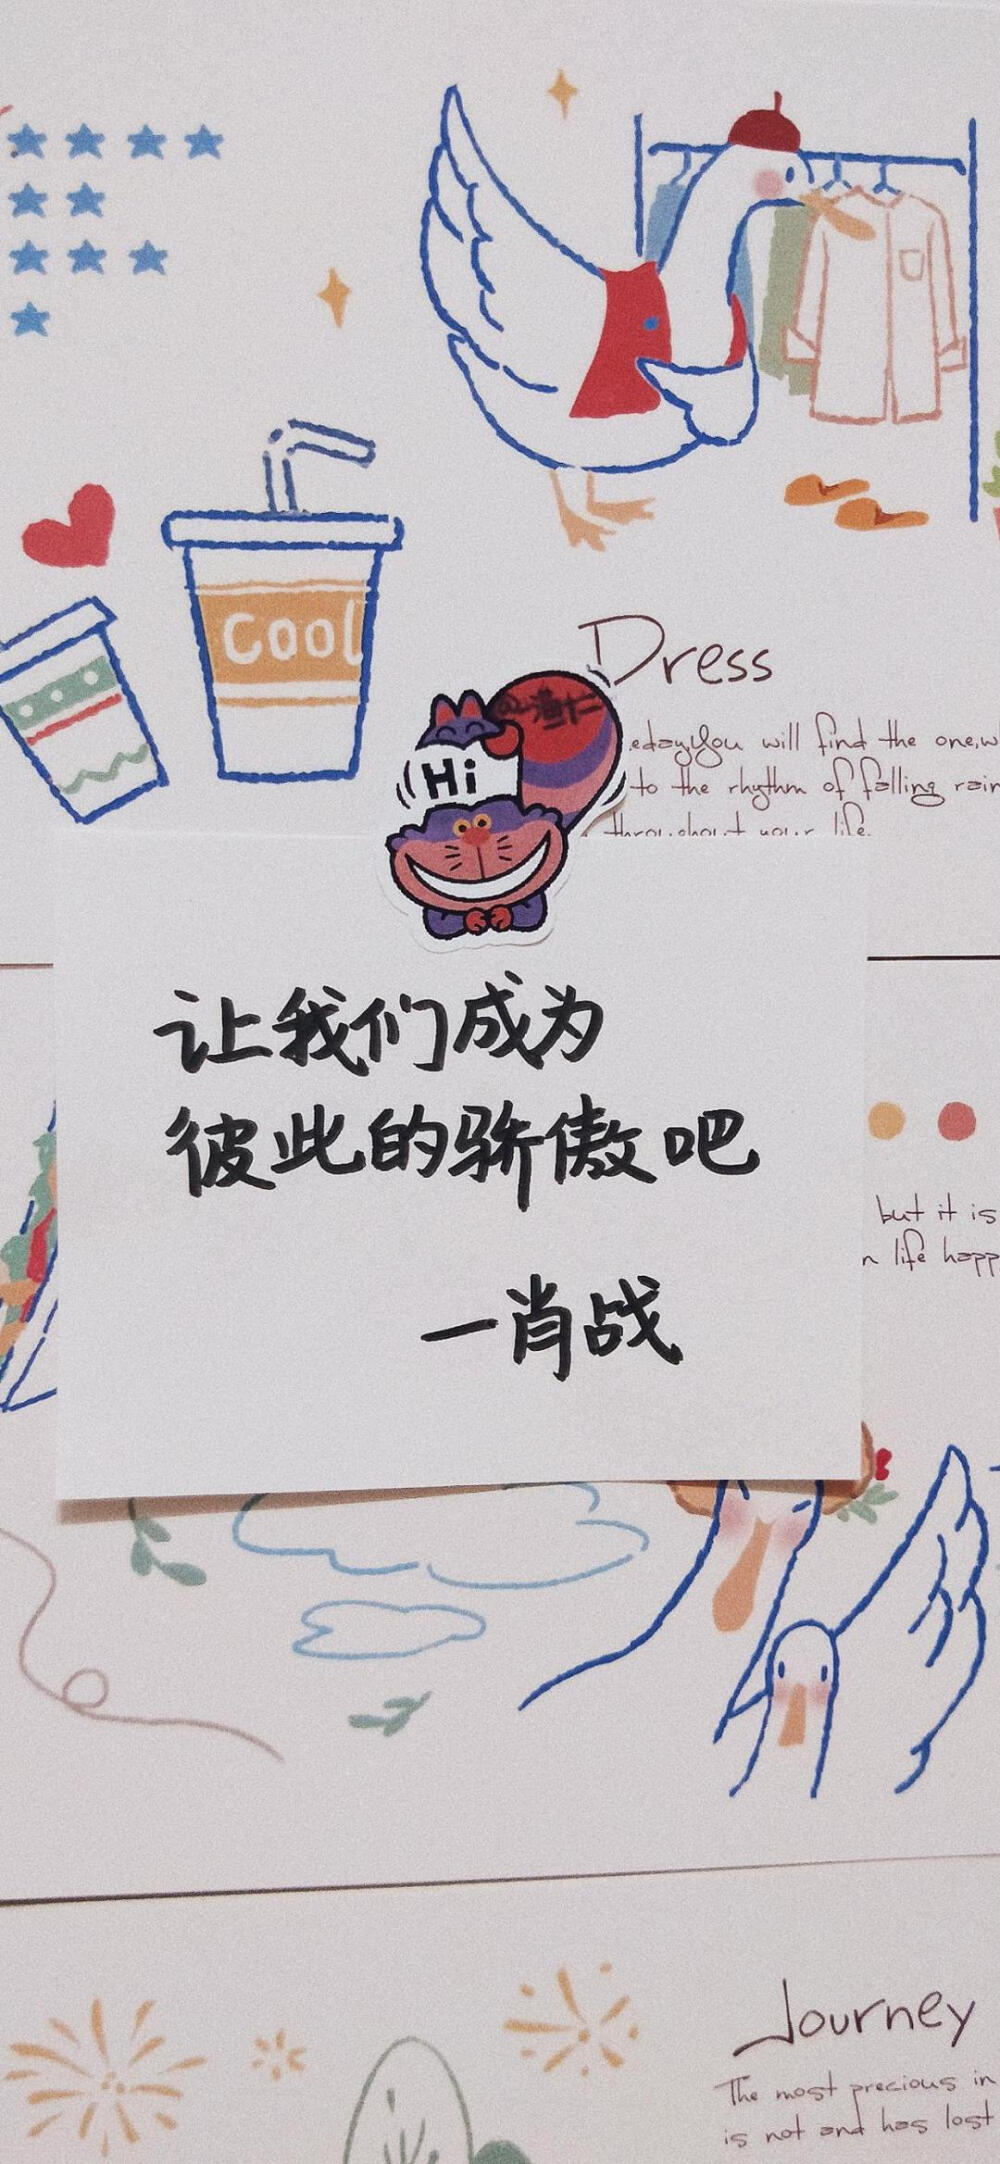 Cool
Dress
you will find the one,w
to the rhythm of falling rain
throughout your life.
Hi
让我们成为
彼此的骄傲吧
一肖战
but it is
n life happ
Journey
The most precious in
is not and has lost